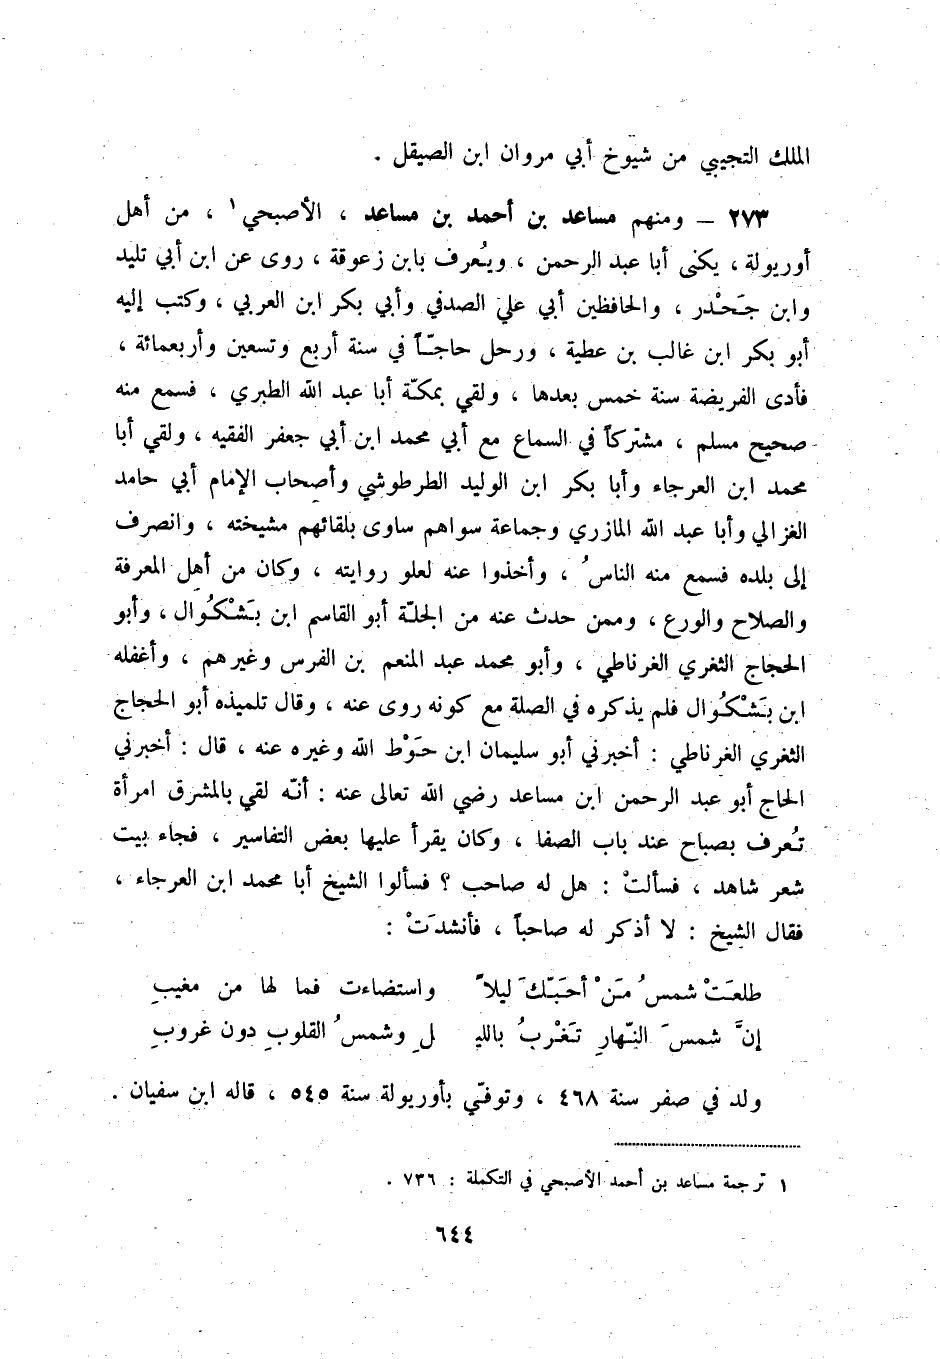 الملك التجيبي من شيوخ أبي مروان ابن الصيقل .
٢٧٣ – ومنهم مساعد بن أحمد بن مساعد ، الأصبحي١ ، من أهل
أوريولة ، يكنى أبا عبد الرحمن ، ويُعرف بابن زعوقة ، روى عن ابن أبي تليد
وابن جَحْدر ، والحافظين أبي علي الصدفي وأبي بكر ابن العربي ، وكتب إليه
أبو بكر ابن غالب بن عطية ، ورحل حاجّاً في سنة أربع وتسعين وأربعمائة ،
فأدى الفريضة سنة خمس بعدها ، ولقي بمكّة أبا عبد الله الطبري ، فسمع منه
صحيح مسلم ، مشتركاً في السماع مع أبي محمد ابن أبي جعفر الفقيه ، ولقي أبا
محمد ابن العرجاء وأبا بكر ابن الوليد الطرطوشي وأصحاب الإمام أبي حامد
الغزالي وأبا عبد الله المازري وجماعة سواهم ساوى بلقائهم مشيخته ، وانصرف
إلى بلده فسمع منه الناسُ ، وأخذوا عنه لعلو روايته ، وكان من أهل المعرفة
والصلاح والورع ، وممن حدث عنه من الجلّة أبو القاسم ابن بَشْكُوال ، وأبو
الحجاج الثغري الغرناطي ، وأبو محمد عبد المنعم بن الفرس وغيرهم ، وأغفله
ابن بَشْكُوال فلم يذكره في الصلة مع كونه روى عنه ، وقال تلميذه أبو الحجاج
الثغري الغرناطي : أخبرني أبو سليمان ابن حَوْط الله وغيره عنه ، قال : أخبرني
الحاج أبو عبد الرحمن ابن مساعد رضي الله تعالى عنه : أنّه لقي بالمشرق امرأة
تُعرف بصباح عند باب الصفا ، وكان يقرأ عليها بعض التفاسير ، فجاء بيت
شعر شاهد ، فسألتْ : هل له صاحب ؟ فسألوا الشيخ أبا محمد ابن العرجاء ،
فقال الشيخ : لا أذكر له صاحباً ، فأنشدَتْ :
طلعَتْ شمسُ مَنْ أحَبّكَ ليلاً واستضاءت فما لها من مغيبِ
إنَّ شمسَ النّهارِ تَغْربُ باللي لِ وشمسُ القلوبِ دون غروبِ
ولد في صفر سنة ٤٦٨ ، وتوفّي بأوريولة سنة ٥٤٥ ، قاله ابن سفيان .
١ ترجمة مساعد بن أحمد الأصبحي في التكملة : ٧٣٦ .
٦٤٤